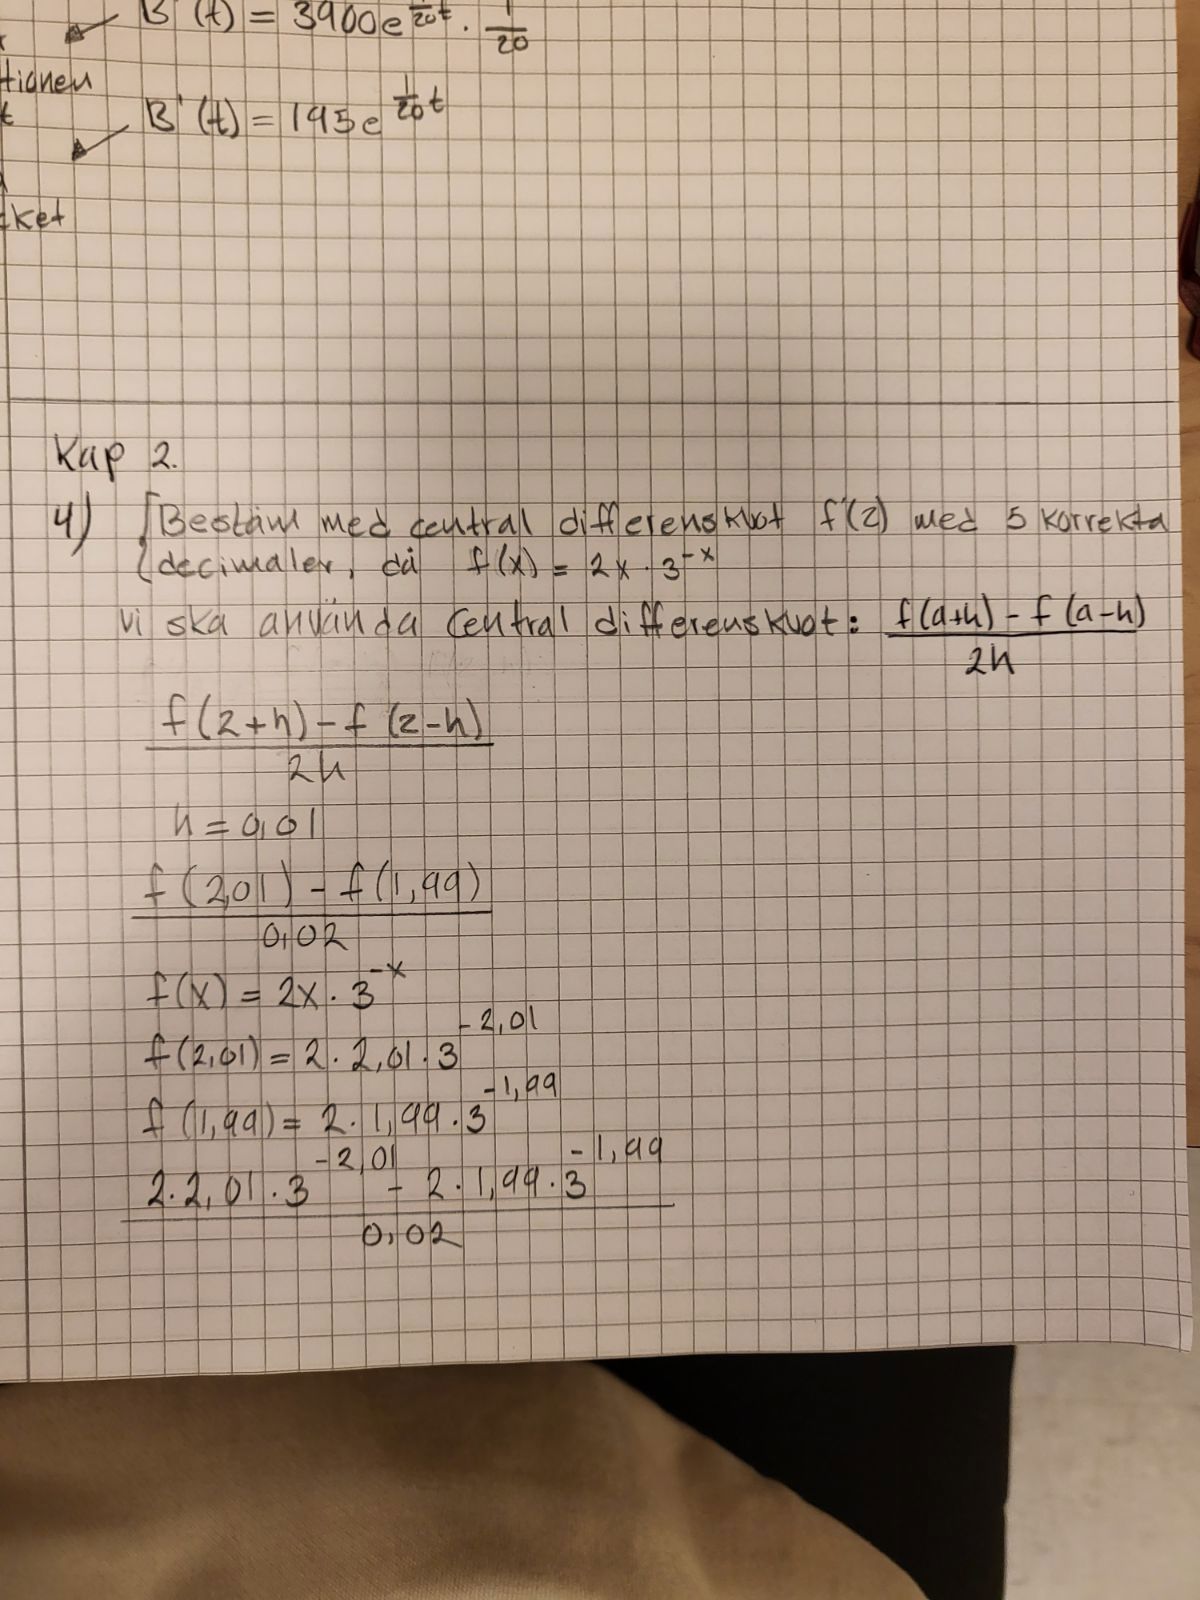 B'(t) = 3900e^{\frac{1}{20}t} · \frac{1}{20}
tionen
t
B'(t) = 195e^{\frac{1}{20}t}
ket
Kap 2.
4) Bestäm med central differenskvot f'(2) med 5 korrekta
decimaler, då f(x) = 2x · 3^{-x}
vi ska använda central differenskvot: \frac{f(a+h) - f(a-h)}{2h}
\frac{f(2+h) - f(2-h)}{2h}
h = 0,01
\frac{f(2,01) - f(1,99)}{0,02}
f(x) = 2x · 3^{-x}
f(2,01) = 2 · 2,01 · 3^{-2,01}
f(1,99) = 2 · 1,99 · 3^{-1,99}
\frac{2 · 2,01 · 3^{-2,01} - 2 · 1,99 · 3^{-1,99}}{0,02}